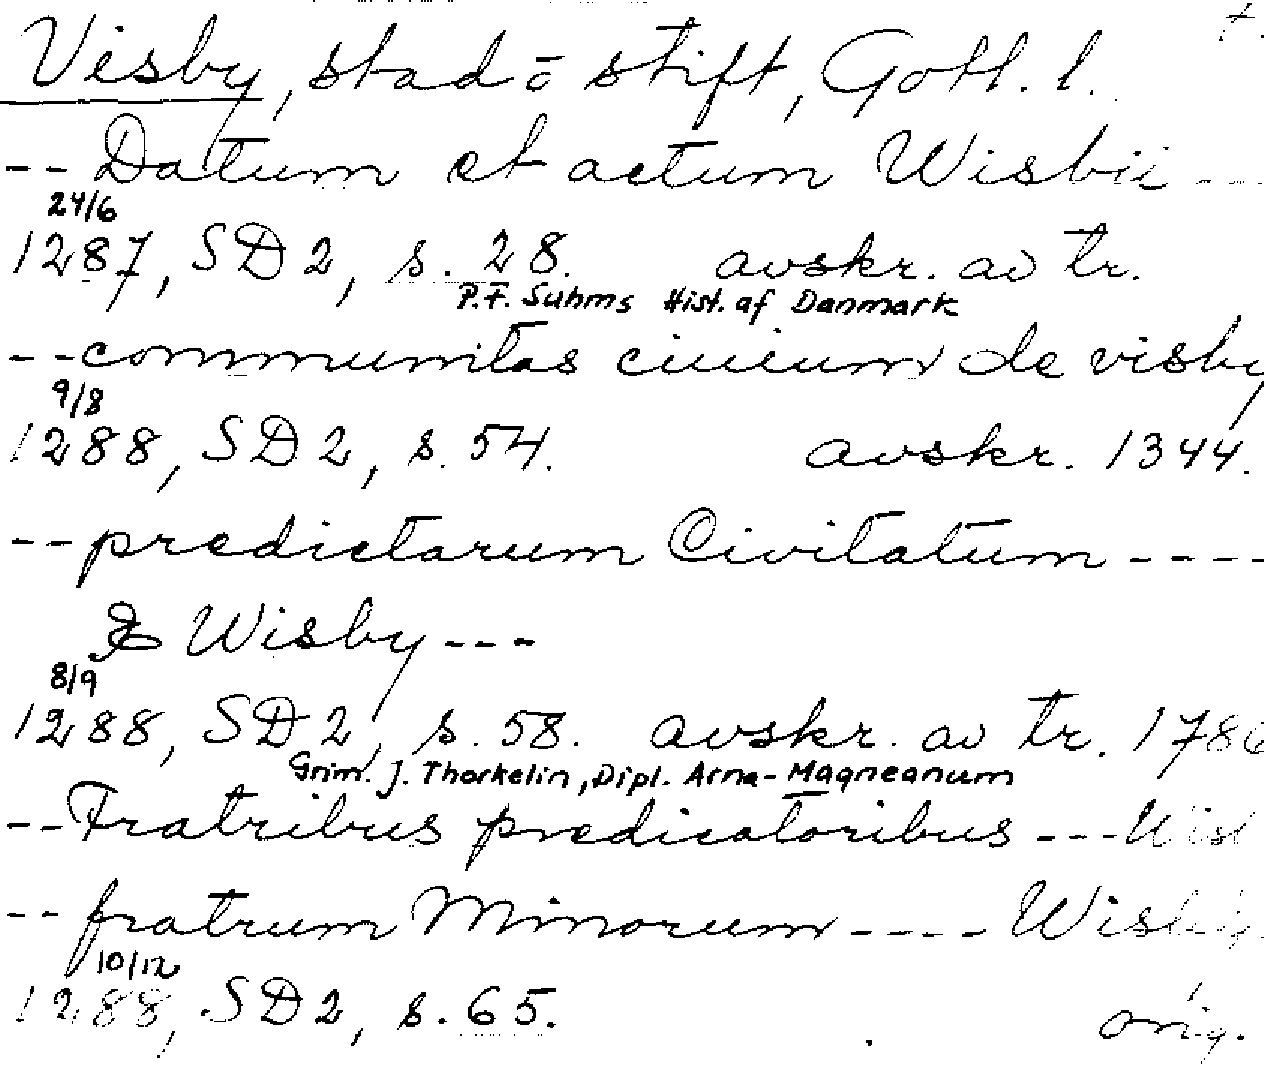 Visby, stad o stift, Gotl. l. +.
-- Datum et actum Wisbii ---
24/6
1287, SD 2, s. 28. avskr. av tr.
P.F. Suhms Hist. af Danmark
-- communitas ciuium de visby
9/8
1288, SD 2, s. 54. avskr. 1344.
-- predictarum Civitatum ----
& Wisby ---
8/9
1288, SD 2, s. 58. avskr. av tr. 1786
Grim. J. Thorkelin, Dipl. Arna-Magneanum
-- Fratribus predicatoribus --- Wisb
-- fratrum Minorum ---- Wisby
10/12
1288, SD 2, s. 65. orig.